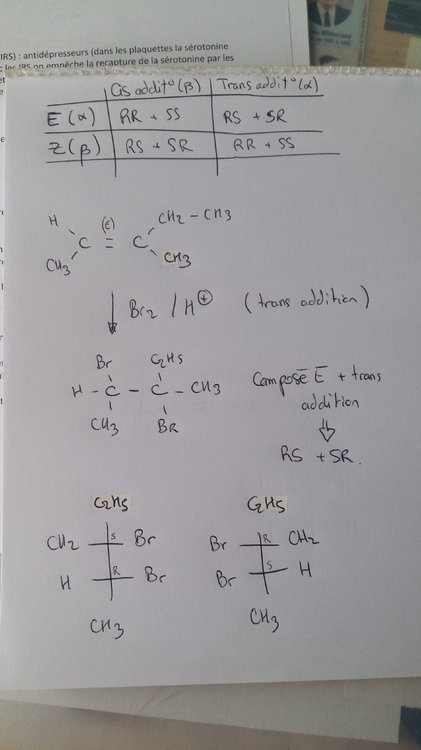 IRS) : antidépresseurs (dans les plaquettes la sérotonine
les IRS on empêche la recapture de la sérotonine par les
Cis addit° (β) Trans addit° (α)
E (α) RR + SS RS + SR
Z (β) RS + SR RR + SS
H (E) CH2 - CH3
C = C
CH3 CH3
Br2 / H⊕ (trans addition)
Br C2H5
H - C - C - CH3
CH3 BR
Composé E + trans
addition
⇓
RS + SR.
C2H5 C2H5
CH2 S Br Br R CH2
H R Br Br S H
CH3 CH3